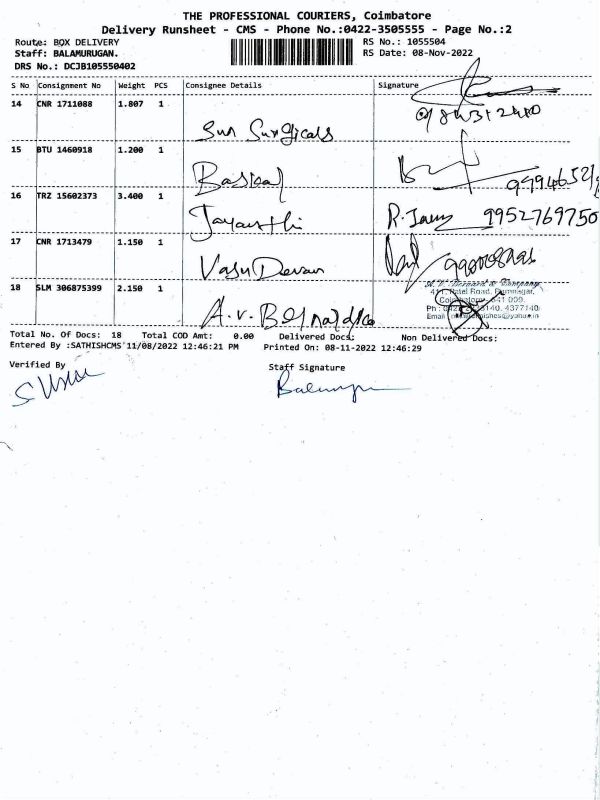 THE PROFESSIONAL COURIERS, Coimbatore
Delivery Runsheet - CMS - Phone No.:0422-3505555 - Page No.:2
Route: BOX DELIVERY
Staff: BALAMURUGAN.
DRS No.: DCJB105550402
RS No.: 1055504
RS Date: 08-Nov-2022
S No Consignment No Weight PCS Consignee Details Signature
14 CNR 1711088 1.807 1
Sun Surgicals
15 BTU 1460918 1.200 1
16 TRZ 15602373 3.400 1
Jayanthi R. 9952769750
17 CNR 1713479 1.150 1
Vasu Devan
18 SLM 306875399 2.150 1
A.V. Bernard & Company
Patel Road, Ramnagar,
Coimbatore - 641 009.
A.V. Bernard & Co
Total No. Of Docs: 18 Total COD Amt: 0.00 Delivered Docs: Non Delivered Docs:
Entered By :SATHISHCMS 11/08/2022 12:46:21 PM Printed On: 08-11-2022 12:46:29
Verified By Staff Signature